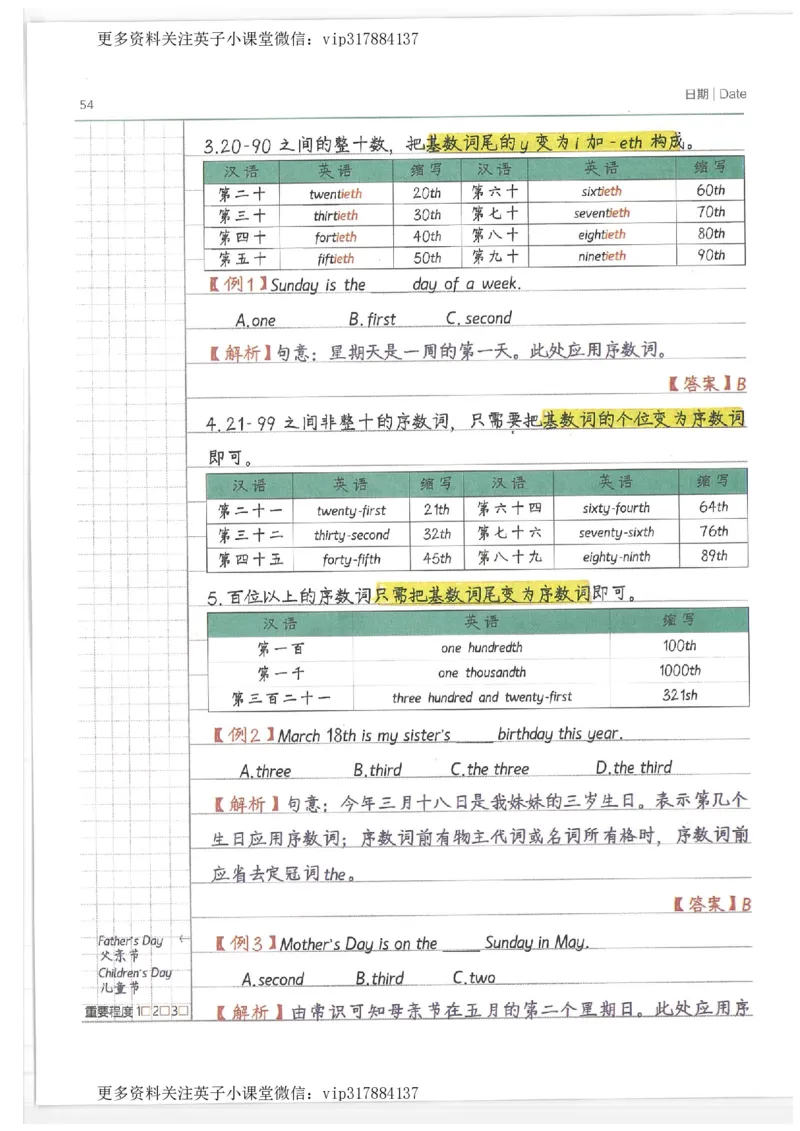 更多资料关注英子小课堂微信：vip317884137
日期 | Date
54
3.20-90 之间的整十数，把基数词尾的 y 变为 i 加 -eth 构成。
汉语 英语 缩写 汉语 英语 缩写
第二十 twentieth 20th 第六十 sixtieth 60th
第三十 thirtieth 30th 第七十 seventieth 70th
第四十 fortieth 40th 第八十 eightieth 80th
第五十 fiftieth 50th 第九十 ninetieth 90th
【例1】Sunday is the _____ day of a week.
A.one B.first C.second
【解析】句意：星期天是一周的第一天。此处应用序数词。
【答案】B
4.21-99 之间非整十的序数词，只需要把基数词的个位变为序数词
即可。
汉语 英语 缩写 汉语 英语 缩写
第二十一 twenty-first 21th 第六十四 sixty-fourth 64th
第三十二 thirty-second 32th 第七十六 seventy-sixth 76th
第四十五 forty-fifth 45th 第八十九 eighty-ninth 89th
5.百位以上的序数词只需把基数词尾变为序数词即可。
汉语 英语 缩写
第一百 one hundredth 100th
第一千 one thousandth 1000th
第三百二十一 three hundred and twenty-first 321sh
【例2】March 18th is my sister's _____ birthday this year.
A.three B.third C.the three D.the third
【解析】句意：今年三月十八日是我妹妹的三岁生日。表示第几个
生日应用序数词；序数词前有物主代词或名词所有格时，序数词前
应省去定冠词 the。
【答案】B
Father's Day ←
父亲节
Children's Day
儿童节
【例3】Mother's Day is on the _____ Sunday in May.
A.second B.third C.two
重要程度 1□ 2□ 3□
【解析】由常识可知母亲节在五月的第二个星期日。此处应用序
更多资料关注英子小课堂微信：vip317884137